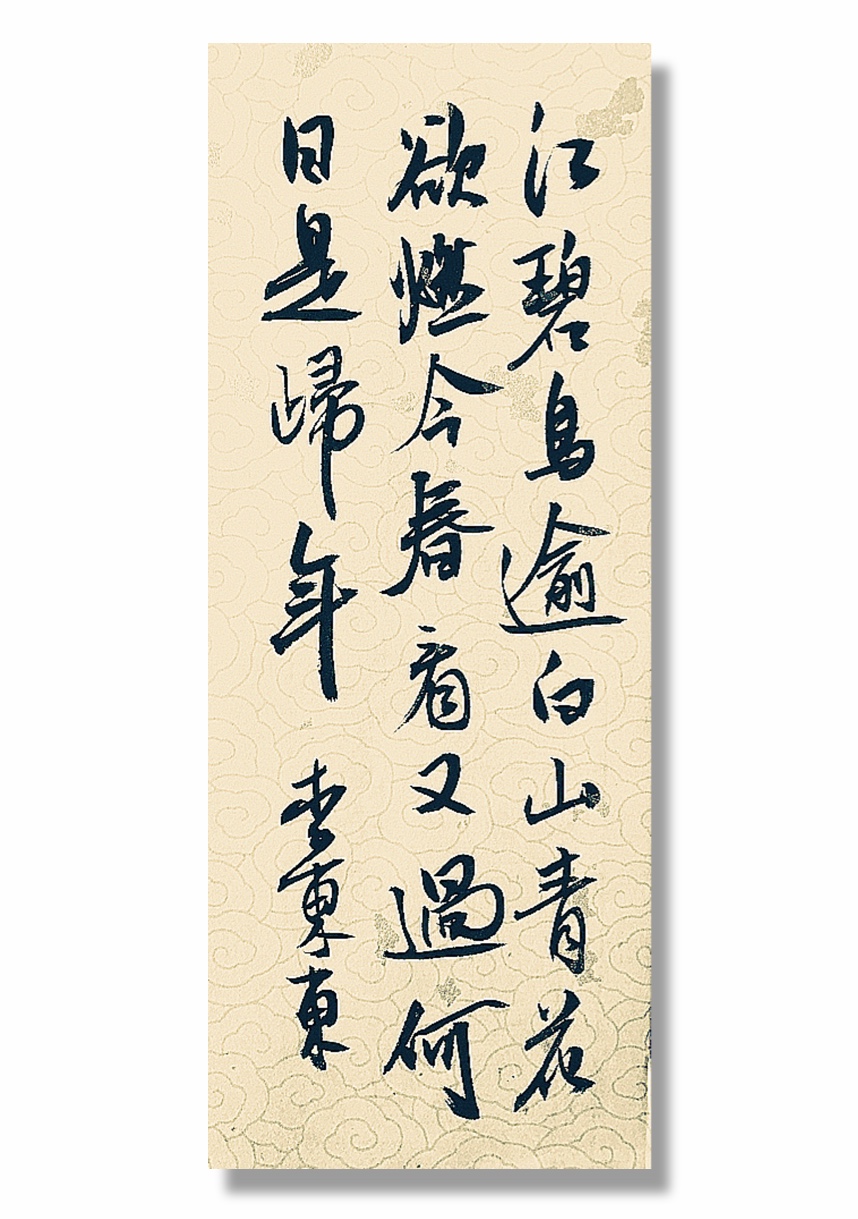 江碧鳥逾白山青花
欲燃今春看又過何
日是歸年 李東東